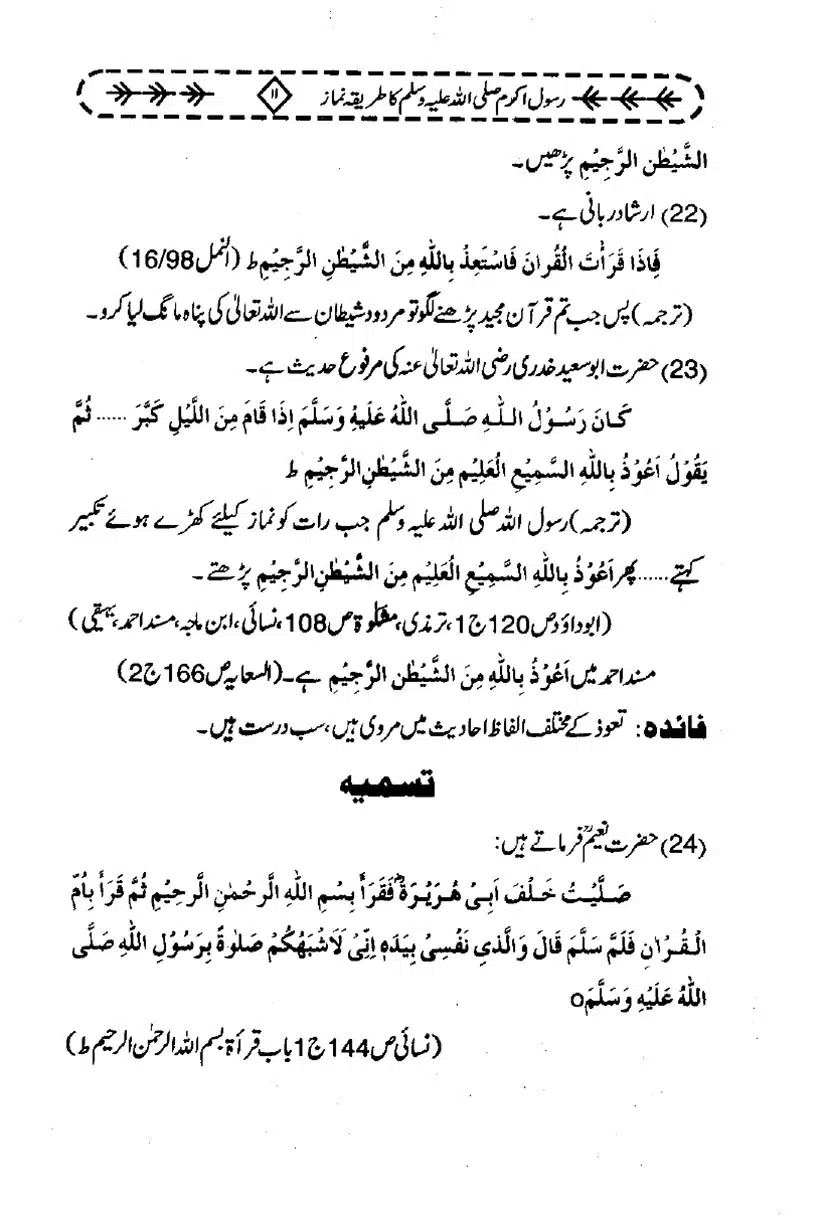 رسول اکرم صلی اللہ علیہ وسلم کا طریقہ نماز ۱۱
الشَّیْطٰنِ الرَّجِیْمِ پڑھیں۔
(22) ارشاد ربانی ہے۔
فَاِذَا قَرَأْتَ الْقُرْاٰنَ فَاسْتَعِذْ بِاللّٰهِ مِنَ الشَّیْطٰنِ الرَّجِیْمِ ط (النمل 16/98)
(ترجمہ) پس جب تم قرآن مجید پڑھنے لگو تو مردود شیطان سے اللہ تعالیٰ کی پناہ مانگ لیا کرو۔
(23) حضرت ابوسعید خدری رضی اللہ تعالیٰ عنہ کی مرفوع حدیث ہے۔
كَانَ رَسُوْلُ اللّٰهِ صَلَّى اللّٰهُ عَلَيْهِ وَسَلَّمَ اِذَا قَامَ مِنَ اللَّيْلِ كَبَّرَ ...... ثُمَّ
يَقُوْلُ اَعُوْذُ بِاللّٰهِ السَّمِيْعِ الْعَلِيْمِ مِنَ الشَّيْطٰنِ الرَّجِيْمِ ط
(ترجمہ) رسول اللہ صلی اللہ علیہ وسلم جب رات کو نماز کیلئے کھڑے ہوئے تکبیر
کہتے...... پھر اَعُوْذُ بِاللّٰهِ السَّمِيْعِ الْعَلِيْمِ مِنَ الشَّيْطٰنِ الرَّجِيْمِ پڑھتے۔
(ابوداؤد ص 120 ج 1، ترمذی، مشکوٰۃ ص 108، نسائی، ابن ماجہ، مسند احمد، بیہقی)
مسند احمد میں اَعُوْذُ بِاللّٰهِ مِنَ الشَّيْطٰنِ الرَّجِيْمِ ہے۔ (السعایہ ص 166 ج 2)
فائدہ: تعوذ کے مختلف الفاظ احادیث میں مروی ہیں، سب درست ہیں۔
تسمیه
(24) حضرت نعیمؒ فرماتے ہیں:
صَلَّيْتُ خَلْفَ اَبِىْ هُرَيْرَةَؓ فَقَرَأَ بِسْمِ اللّٰهِ الرَّحْمٰنِ الرَّحِيْمِ ثُمَّ قَرَأَ بِاُمِّ
الْقُرْاٰنِ فَلَمَّ سَلَّمَ قَالَ وَالَّذِي نَفْسِىْ بِيَدِهٖ اِنِّىْ لَاَشْبَهُكُمْ صَلٰوةً بِرَسُوْلِ اللّٰهِ صَلَّى
اللّٰهُ عَلَيْهِ وَسَلَّمَ o
(نسائی ص 144 ج 1 باب قرأۃ بسم اللہ الرحمٰن الرحیم ط)